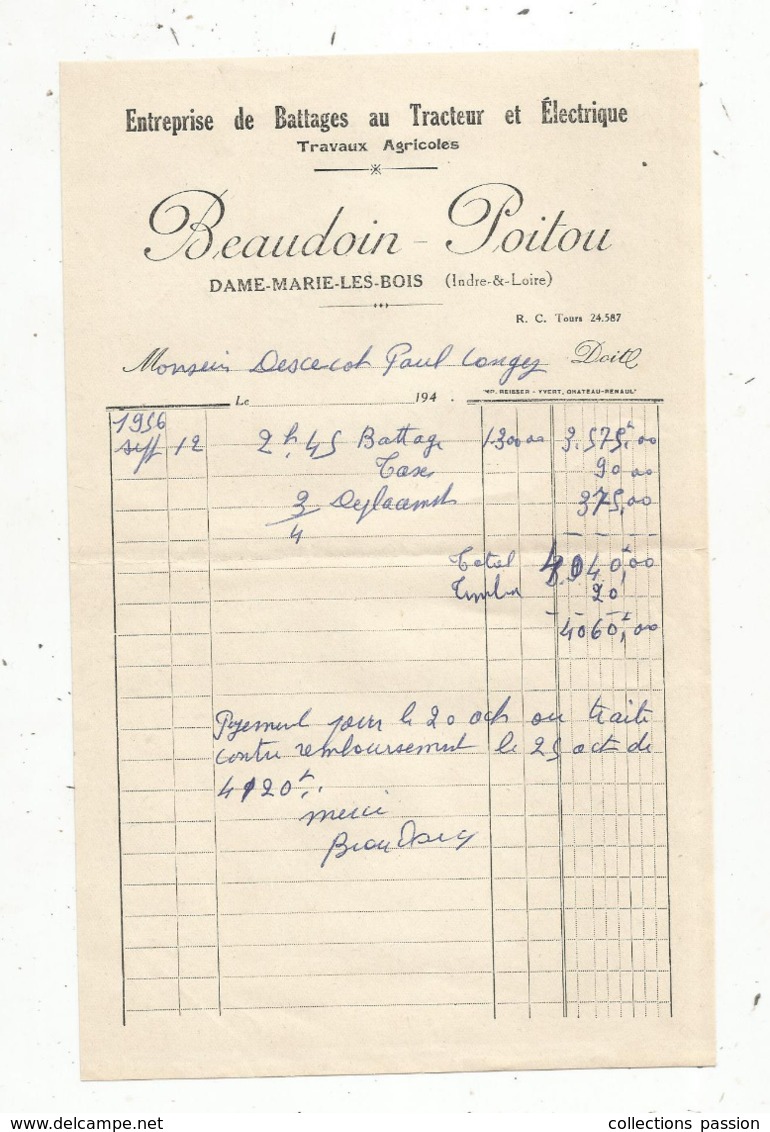 Entreprise de Battages au Tracteur et Électrique
Travaux Agricoles
Beaudoin - Poitou
DAME-MARIE-LES-BOIS (Indre-&-Loire)
R. C. Tours 24.587
Monsieur Paul Doit
Le 194 .
IMP. REISSER - YVERT, CHATEAU-RENAULT
1956
sept 12 2h,45 Battage 1300 00 3.575,00
Taxe 90 00
3/4 Deplacement 375,00
Total 4.040,00
Timbre 20
4060,00
Payement pour le 20 oct ou traite
contre remboursement le 25 oct de
4120f.
merci
Beaudoin
collections passion